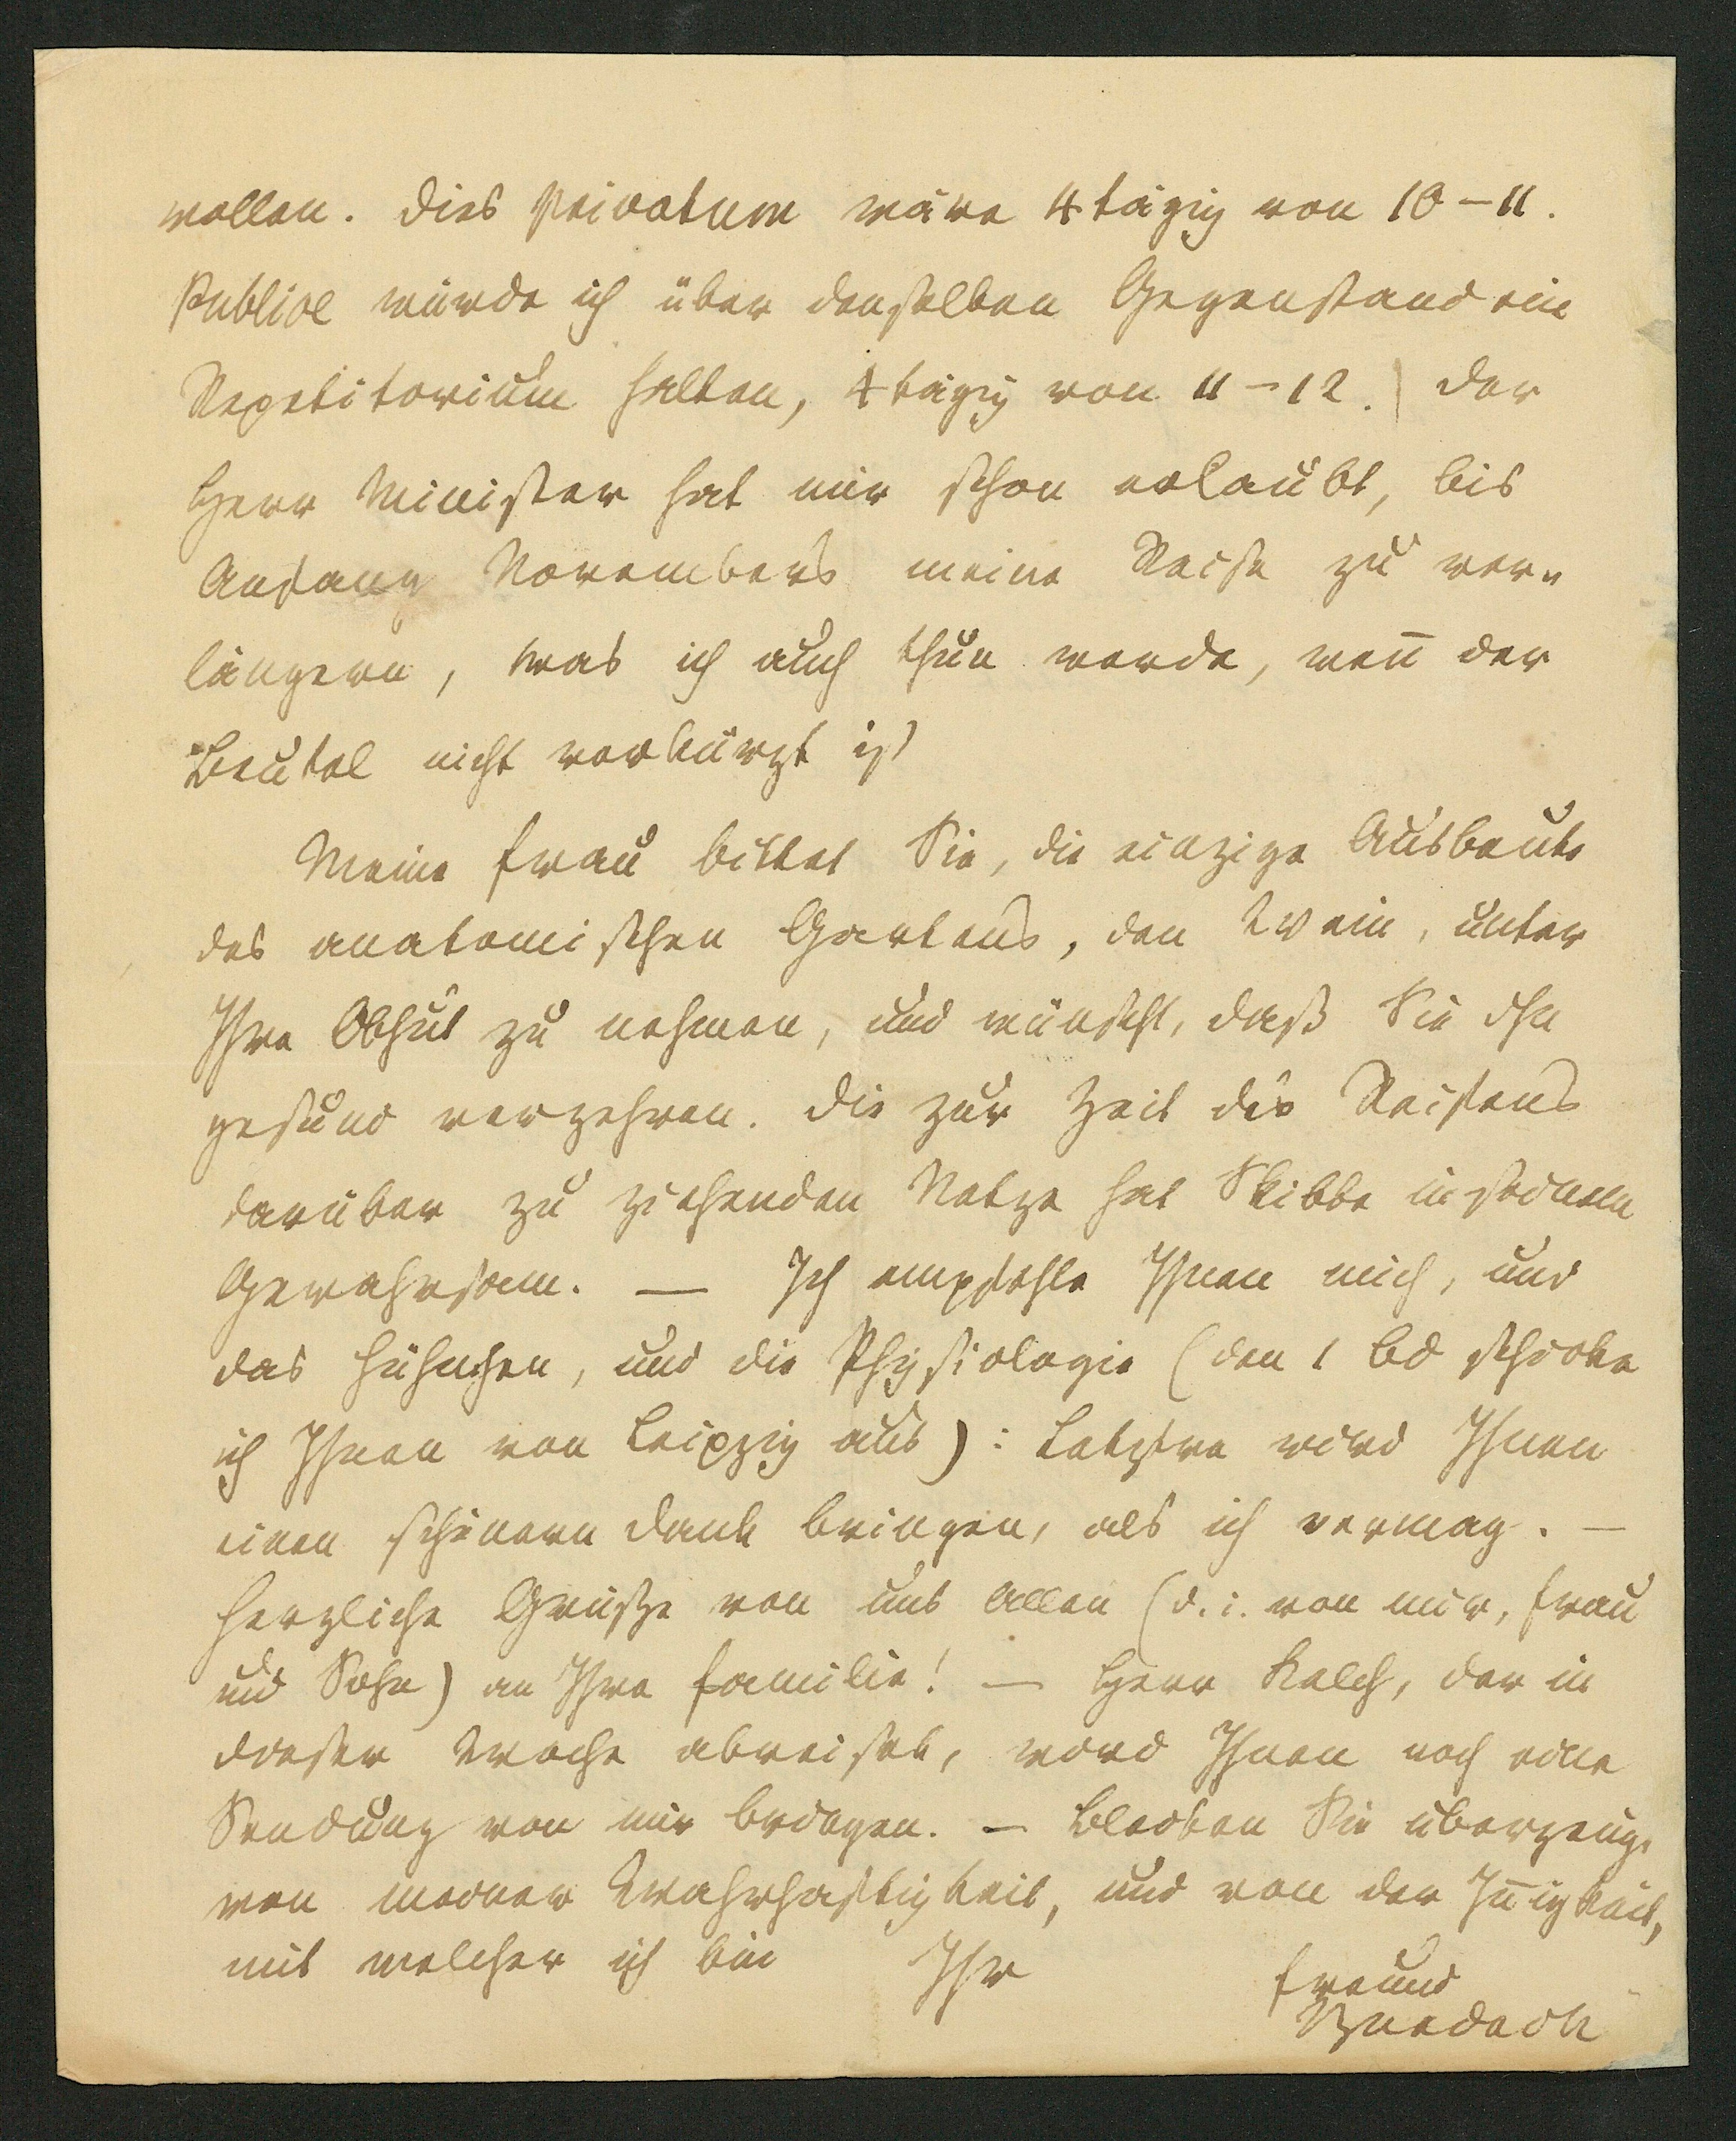 wollen. Dies Privatum wäre 4tägig von 10–11.
Publice würde ich über denselben Gegenstand ein
Repetitorium halten, 4tägig von 11–12. | Der
Herr Minister hat mir schon erlaubt, bis
Anfang Novembers meine Reise zu ver-
längern, was ich auch thun werde, weñ der
Beutel nicht verkürzt ist
Meine Frau bittet Sie, die einzige Ausbeute
des anatomischen Gartens, den Wein, unter
Ihre Obhut zu nehmen, und wünscht, daß Sie ihn
gesund verzehren. Die zur Zeit des Reifens
darüber zu ziehenden Netze hat Skibbe in seinem
Gewahrsam. — Ich empfehle Ihnen mich, und
das Hühnchen, und die Physiologie (den 1 Bd schicke
ich Ihnen von Leipzig aus): Letztre wird Ihnen
einen schönern Dank bringen, als ich vermag. —
Herzliche Grüße von uns Allen (d. i. von mir, Frau
und Sohn) an Ihre Familie! — Herr Kelch, der in
dieser Woche abreiset, wird Ihnen noch eine
Sendung von mir bringen. — Bleiben Sie überzeugt
von meiner Wahrhaftigkeit, und von der Iñigkeit,
mit welcher ich bin Ihr
Freund
Burdach